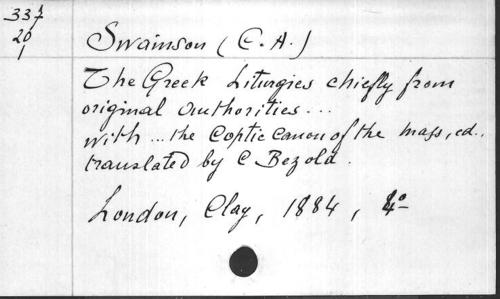 337
20
1
Swainson (C.A.)
The Greek Liturgies chiefly from
original authorities...
with ... the Coptic Canon of the mass, ed.,
translated by C Bezold.
London, Clay, 1884, 4º